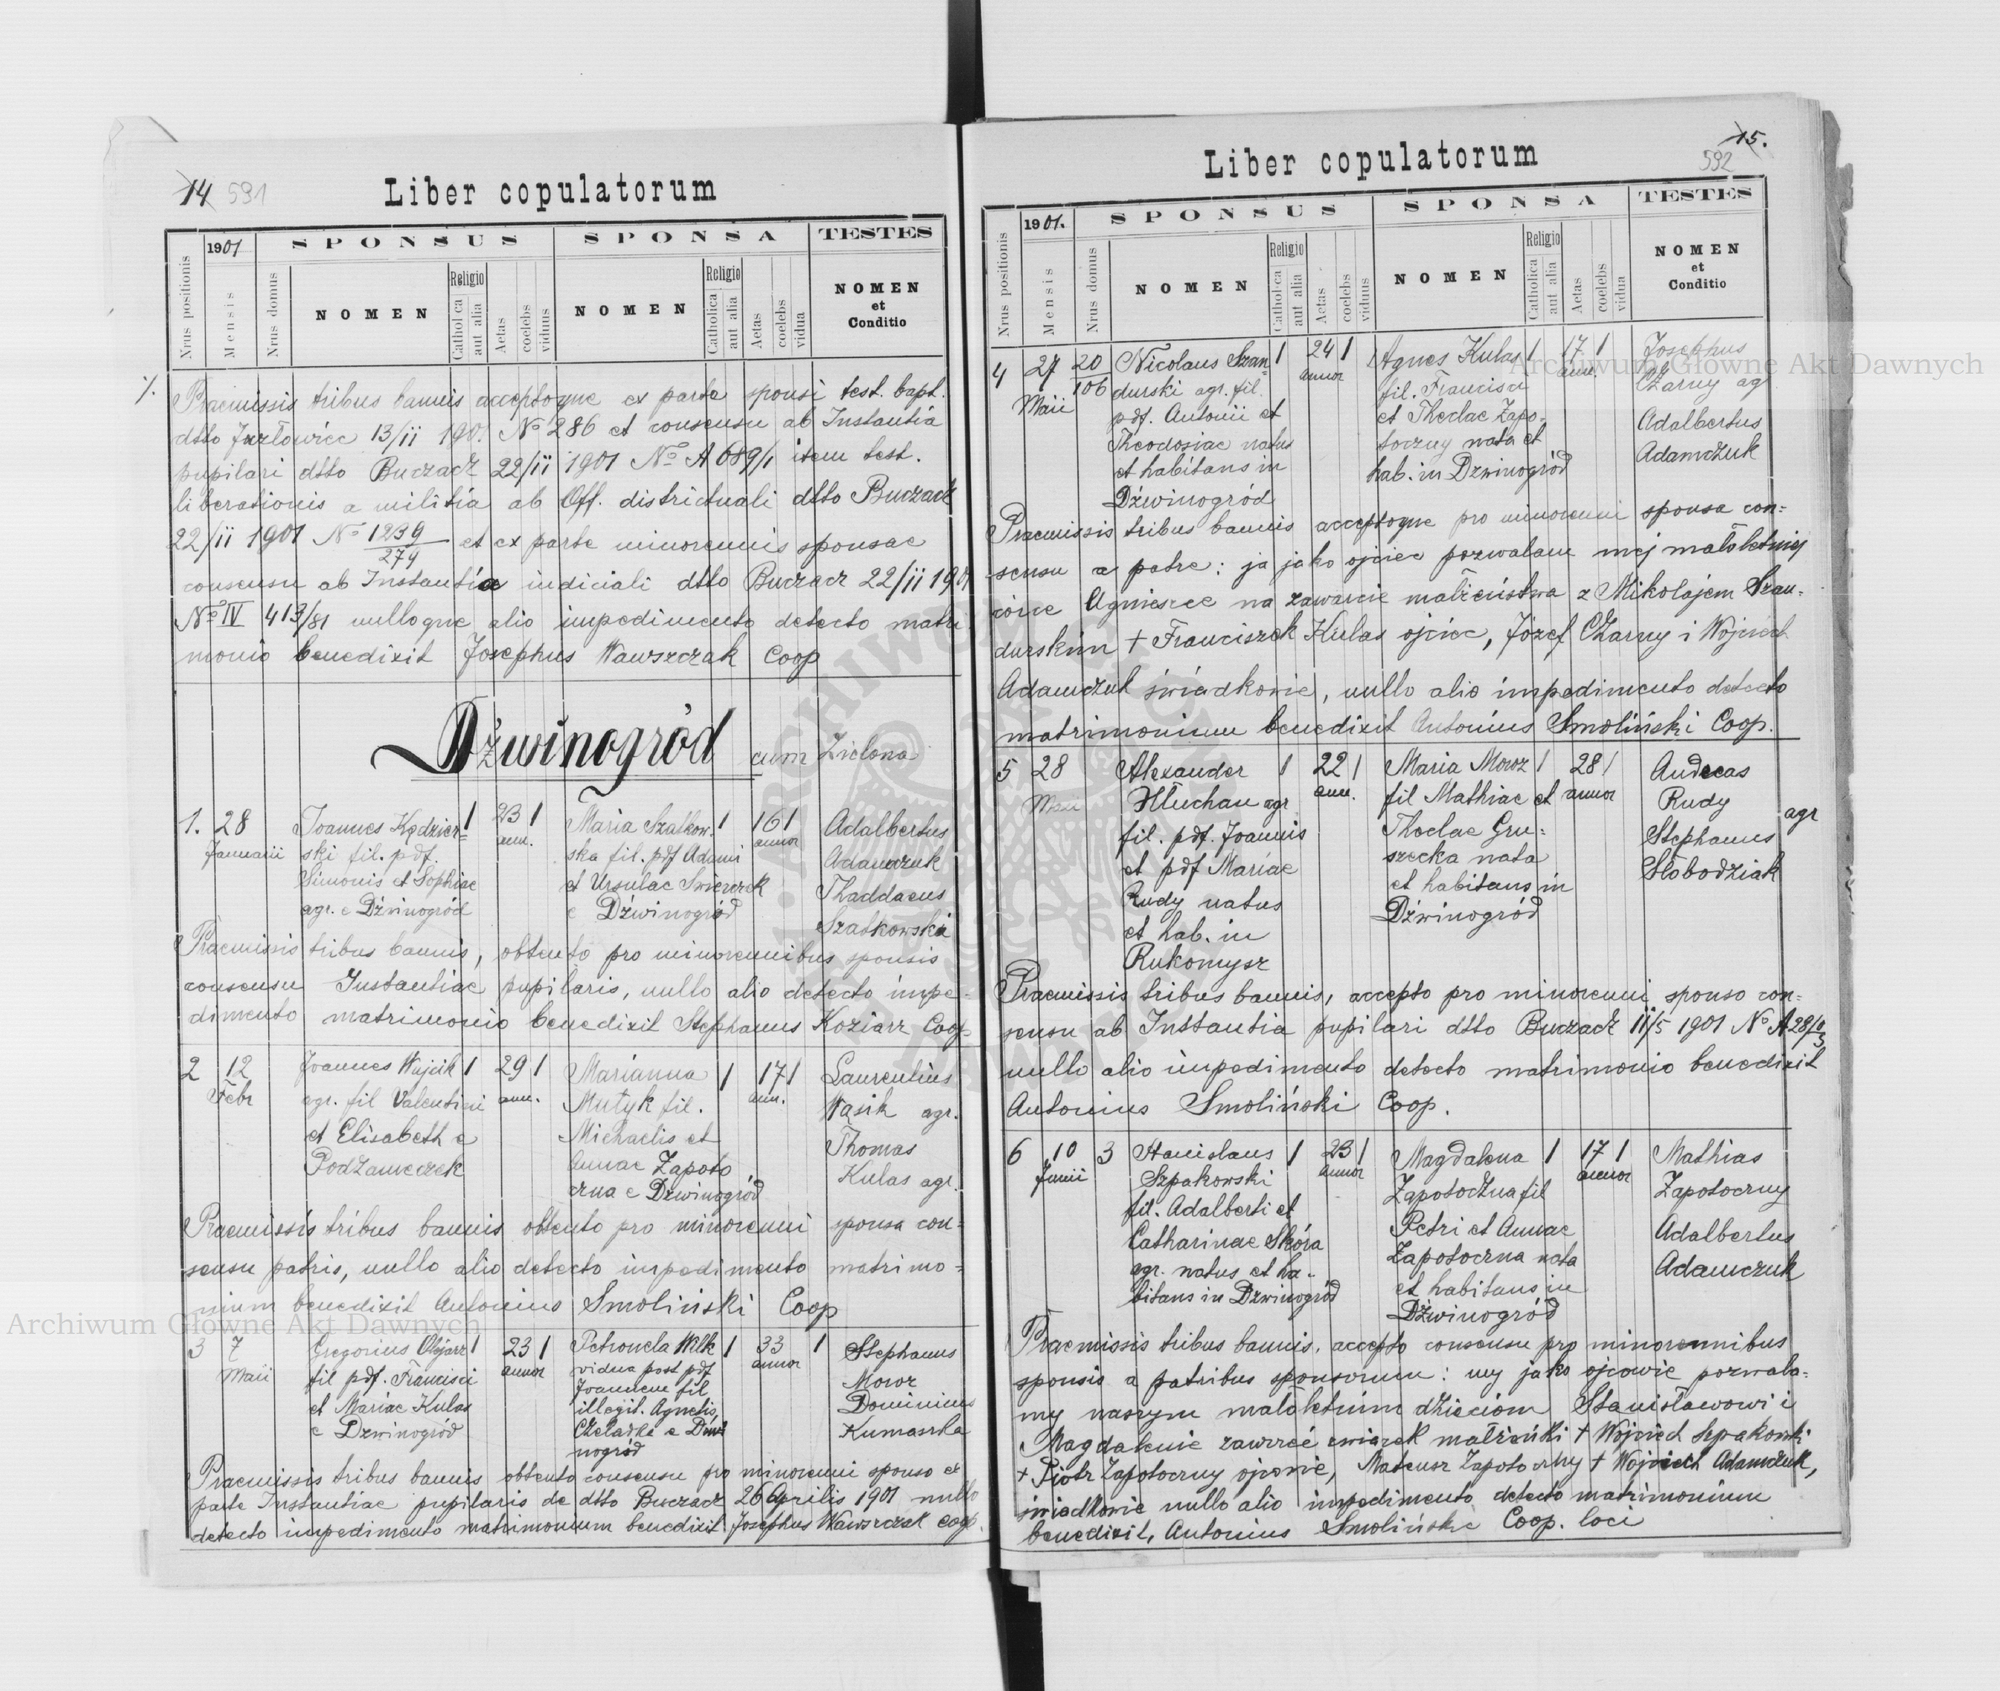 14 591
Liber copulatorum
Nrus positionis
1901
Mensis
SPONSUS
SPONSA
TESTES
Nrus domus
NOMEN
Religio
Catholica
aut alia
Aetas
coelebs
viduus
NOMEN
Religio
Catholica
aut alia
Aetas
coelebs
vidua
NOMEN
et
Conditio
Praemissis tribus bannis acceptoque ex parte sponsi test. bapt.
dtto Jazłowiec 13/II 1901 No 286 et consensu ab Instantia
pupilari dtto Buczacz 22/II 1901 No A 689/1 item test.
liberationis a militia ab Off. districtuali dtto Buczacz
22/II 1901 No 1239/274 et ex parte minorennis sponsae
consensu ab Instantia iudiciali dtto Buczacz 22/II 1901
No IV 413/81 nulloque alio impedimento detecto matri
monio benedixit Josephus Wawszczak Coop
Dźwinogród cum Zielona
1. 28 Januarii
Joannes Kędzier-
ski fil. pdf.
Simonis et Sophiae
agr. e Dźwinogród
23 ann.
Maria Szatkow-
ska fil. pdf Adami
et Ursulae Swierczek
e Dźwinogród
16 annor
Adalbertus
Adamczuk
Thaddaeus
Szatkowski
Praemissis tribus bannis, obtento pro minorennibus sponsis
consensu Instantiae pupilaris, nullo alio detecto impe-
dimento matrimonio benedixit Stephanus Koziarz Coop
2 12 Febr
Joannes Wujcik
agr. fil Valentini
et Elisabeth e
Podzameczek
29 ann.
Marianna
Mutyk fil.
Michaelis et
Annae Zapoto
czna e Dzwinogród
17 ann.
Laurentius
Wasik agr.
Thomas
Kulas agr.
Praemissis tribus bannis obtento pro minorenni sponsa con-
sensu patris, nullo alio detecto impedimento matrimo-
nium benedixit Antonius Smoliński Coop
3 7 Maii
Gregorius Olijarz
fil pdf. Francisci
et Mariae Kulas
e Dzwinogród
23 annor
Petronela Wilk
vidua post pdf
Joannem fil
illegit. Agnetis
Czeladka e Dźwi
nogród
33 annor
Stephanus
Moroz
Dominicus
Kumaszka
Praemissis tribus bannis obtento consensu pro minorenni sponso ex
parte Instantiae pupilaris de dtto Buczacz 26 Aprilis 1901 nullo
detecto impedimento matrimonium benedixit Josephus Wawszczak coop.
15.
592
Liber copulatorum
Nrus positionis
1901.
Mensis
SPONSUS
SPONSA
TESTES
Nrus domus
NOMEN
Religio
Catholica
aut alia
Aetas
coelebs
viduus
NOMEN
Religio
Catholica
aut alia
Aetas
coelebs
vidua
NOMEN
et
Conditio
4 27 Maii 20/106
Nicolaus Szan-
durski agr. fil.
pdf. Antonii et
Theodosiae natus
et habitans in
Dźwinogród
24 annor
Agnes Kulas
fil. Francisci
et Theclae Zapo-
toczny nata et
hab. in Dzwinogród
17 ann.
Josephus
Czarny agr
Adalbertus
Adamczuk
Praemissis tribus bannis acceptoque pro minorenni sponsa con-
sensu a patre: ja jako ojciec pozwalam mej małoletniej
córce Agnieszce na zawarcie małżeństwa z Mikołajem Szan-
durskim + Franciszek Kulas ojciec, Józef Czarny i Wojciech
Adamczuk świadkowie, nullo alio impedimento detecto
matrimonium benedixit Antonius Smoliński Coop.
5 28 Maii
Alexander
Hłuchan agr
fil. pdf. Joannis
et pdf Mariae
Rudy natus
et hab. in
Rukomysz
22 ann.
Maria Moroz
fil Mathiae et
Theclae Gru-
szecka nata
et habitans in
Dźwinogród
28 annor
Andreas
Rudy agr
Stephanus
Słobodziak
Praemissis tribus bannis, accepto pro minorenni sponso con-
sensu ab Instantia pupilari dtto Buczacz 11/5 1901 No A 28/
nullo alio impedimento detecto matrimonio benedixit
Antonius Smoliński Coop.
6 10 Junii 3
Stanislaus
Szpakowski
fil. Adalberti et
Catharinae Skóra
agr. natus et ha-
bitans in Dzwinogród
23 annor
Magdalena
Zapotoczna fil
Petri et Annae
Zapotoczna nata
et habitans in
Dźwinogród
17 annor
Mathias
Zapotoczny
Adalbertus
Adamczuk
Praemissis tribus bannis, accepto consensu pro minorennibus
sponsis a patribus sponsorum: my jako ojcowie pozwala-
my naszym małoletnim dzieciom Stanisławowi i
Magdalenie zawrzeć związek małżeński + Wojciech Szpakowski
+ Piotr Zapotoczny ojcowie, Mateusz Zapotoczny + Wojciech Adamczuk,
świadkowie nullo alio impedimento detecto matrimonium
benedixit, Antonius Smoliński Coop. loci
Archiwum Główne Akt Dawnych
Archiwum Główne Akt Dawnych